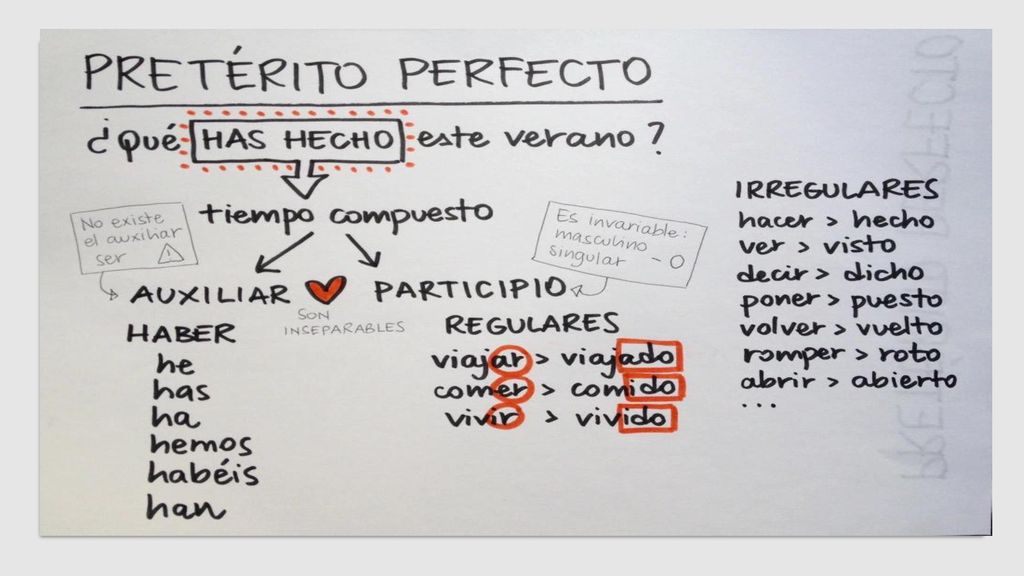 PRETÉRITO PERFECTO
¿Qué HAS HECHO este verano?
tiempo compuesto
No existe
el auxiliar
ser
Es invariable:
masculino
singular - O
AUXILIAR PARTICIPIO
SON
INSEPARABLES
HABER
he
has
ha
hemos
habéis
han
REGULARES
viajar > viajado
comer > comido
vivir > vivido
IRREGULARES
hacer > hecho
ver > visto
decir > dicho
poner > puesto
volver > vuelto
romper > roto
abrir > abierto
...
PRETÉRITO PERFECTO